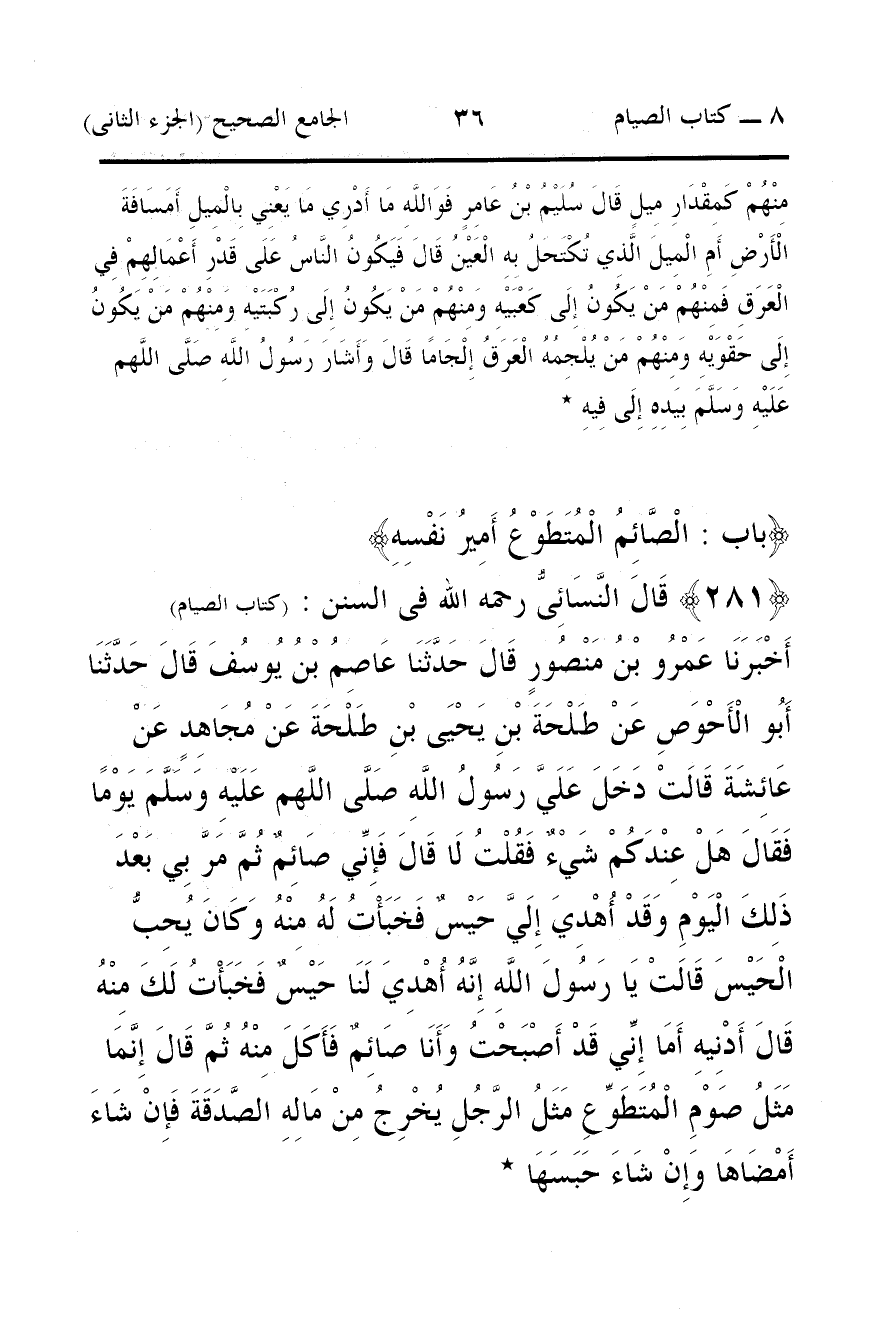 ٨ ــ كتاب الصيام ٣٦ الجامع الصحيح (الجزء الثانى)
مِنْهُمْ كَمِقْدَارِ مِيلٍ قَالَ سُلَيْمُ بْنُ عَامِرٍ فَوَاللَّهِ مَا أَدْرِي مَا يَعْنِي بِالْمِيلِ أَمَسَافَةَ
الْأَرْضِ أَمِ الْمِيلَ الَّذِي تُكْتَحَلُ بِهِ الْعَيْنُ قَالَ فَيَكُونُ النَّاسُ عَلَى قَدْرِ أَعْمَالِهِمْ فِي
الْعَرَقِ فَمِنْهُمْ مَنْ يَكُونُ إِلَى كَعْبَيْهِ وَمِنْهُمْ مَنْ يَكُونُ إِلَى رُكْبَتَيْهِ وَمِنْهُمْ مَنْ يَكُونُ
إِلَى حَقْوَيْهِ وَمِنْهُمْ مَنْ يُلْجِمُهُ الْعَرَقُ إِلْجَامًا قَالَ وَأَشَارَ رَسُولُ اللَّهِ صَلَّى اللَّهم
عَلَيْهِ وَسَلَّمَ بِيَدِهِ إِلَى فِيهِ *
﴿باب : الْصَّائِمُ الْمُتَطَوْعُ أَمِيرُ نَفْسِهِ﴾
﴿٢٨١﴾ قَالَ النَّسَائِىُّ رحمه الله فى السنن : (كتاب الصيام)
أَخْبَرَنَا عَمْرُو بْنُ مَنْصُورٍ قَالَ حَدَّثَنَا عَاصِمُ بْنُ يُوسُفَ قَالَ حَدَّثَنَا
أَبُو الْأَحْوَصِ عَنْ طَلْحَةَ بْنِ يَحْيَى بْنِ طَلْحَةَ عَنْ مُجَاهِدٍ عَنْ
عَائِشَةَ قَالَتْ دَخَلَ عَلَيَّ رَسُولُ اللَّهِ صَلَّى اللَّهم عَلَيْهِ وَسَلَّمَ يَوْمًا
فَقَالَ هَلْ عِنْدَكُمْ شَيْءٌ فَقُلْتُ لَا قَالَ فَإِنِّي صَائِمٌ ثُمَّ مَرَّ بِي بَعْدَ
ذَلِكَ الْيَوْمِ وَقَدْ أُهْدِيَ إِلَيَّ حَيْسٌ فَخَبَأْتُ لَهُ مِنْهُ وَكَانَ يُحِبُّ
الْحَيْسَ قَالَتْ يَا رَسُولَ اللَّهِ إِنَّهُ أُهْدِيَ لَنَا حَيْسٌ فَخَبَأْتُ لَكَ مِنْهُ
قَالَ أَدْنِيهِ أَمَا إِنِّي قَدْ أَصْبَحْتُ وَأَنَا صَائِمٌ فَأَكَلَ مِنْهُ ثُمَّ قَالَ إِنَّمَا
مَثَلُ صَوْمِ الْمُتَطَوِّعِ مَثَلُ الرَّجُلِ يُخْرِجُ مِنْ مَالِهِ الصَّدَقَةَ فَإِنْ شَاءَ
أَمْضَاهَا وَإِنْ شَاءَ حَبَسَهَا *